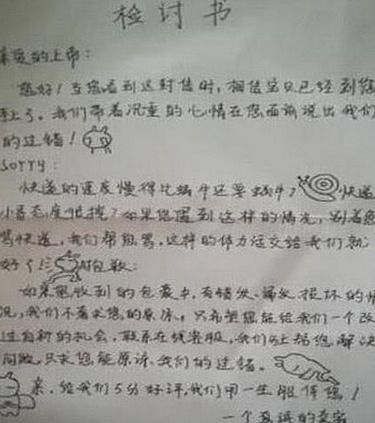 检讨书
亲爱的上帝：
您好！当您看到这封信时，相信宝贝已经到您
手上了。我们带着沉重的心情在您面前说出我们
的过错！
sorry：
快递的速度慢得比蜗牛还要蜗牛？快递
小哥态度低挠？如果您遇到这样的情况，别着急
骂快递，我们帮您骂，这样的体力活交给我们就
好了！抱歉：
如果您收到的包裹中，有错发、漏发、损坏的情
况，我们不奢求您的原谅，只希望您能给我们一个改
过自新的机会，联系在线客服，我们马上帮您解决
问题，只求您能原谅我们的过错。
亲，给我们5分好评，我们用一生服侍您！
一个真诚的卖家